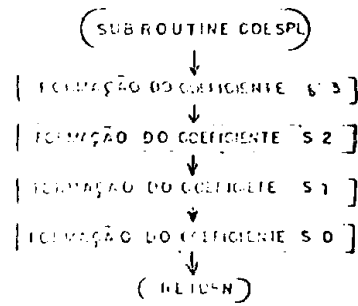 SUBROUTINE COESPL
FORMAÇÃO DO COEFICIENTE S 3
FORMAÇÃO DO COEFICIENTE S 2
FORMAÇÃO DO COEFICIENTE S 1
FORMAÇÃO DO COEFICIENTE S 0
RETURN